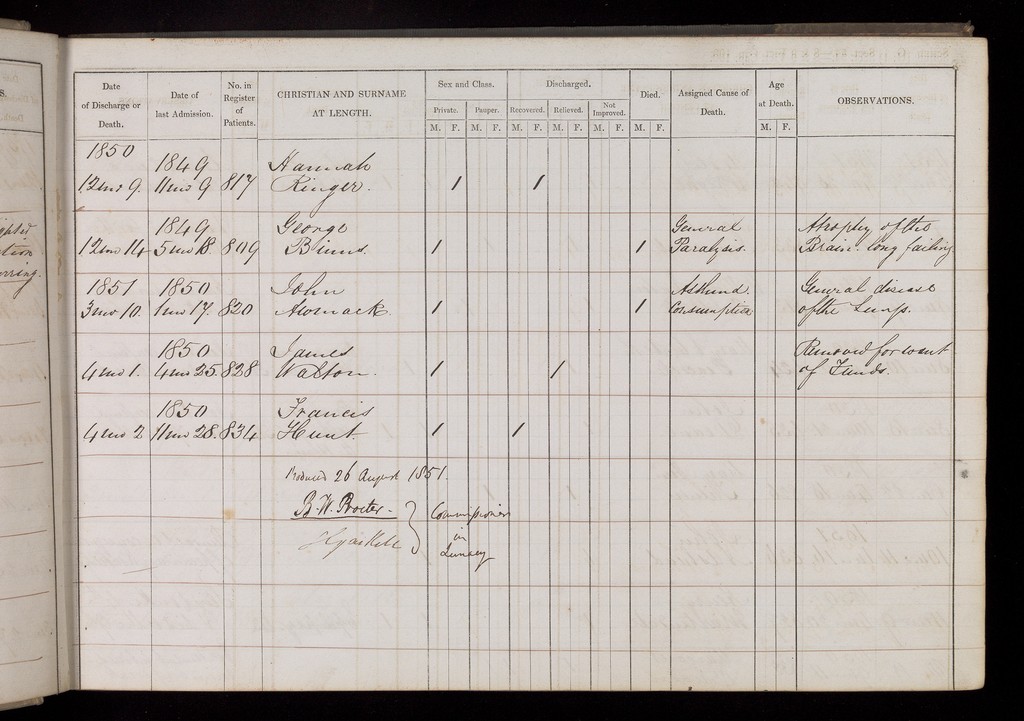 Date of Discharge or Death. Date of last Admission. No. in Register of Patients. CHRISTIAN AND SURNAME AT LENGTH. Sex and Class. Discharged. Died. Assigned Cause of Death. Age at Death. OBSERVATIONS.
Private. Pauper. Recovered. Relieved. Not Improved.
M. F. M. F. M. F. M. F. M. F. M. F. M. F.
1850 1849 Hannah
12mo 9. 11mo 9 817 Ringer. 1 1
1849 George General Atrophy of the
12mo 14 5mo 18. 809 Binns. 1 1 Paralysis. Brain. long failing
1851 1850 John General disease
3mo 10. 1mo 17. 820 1 1 Consumption of the Lungs.
1850 James Removed for want
4mo 1. 4mo 25. 828 Walton. 1 1 of Funds.
1850 Francis
4mo 2 11mo 28. 834 Hunt. 1 1
Produced 26 August 1851.
B. W. Procter Commissioners
in
Lunacy